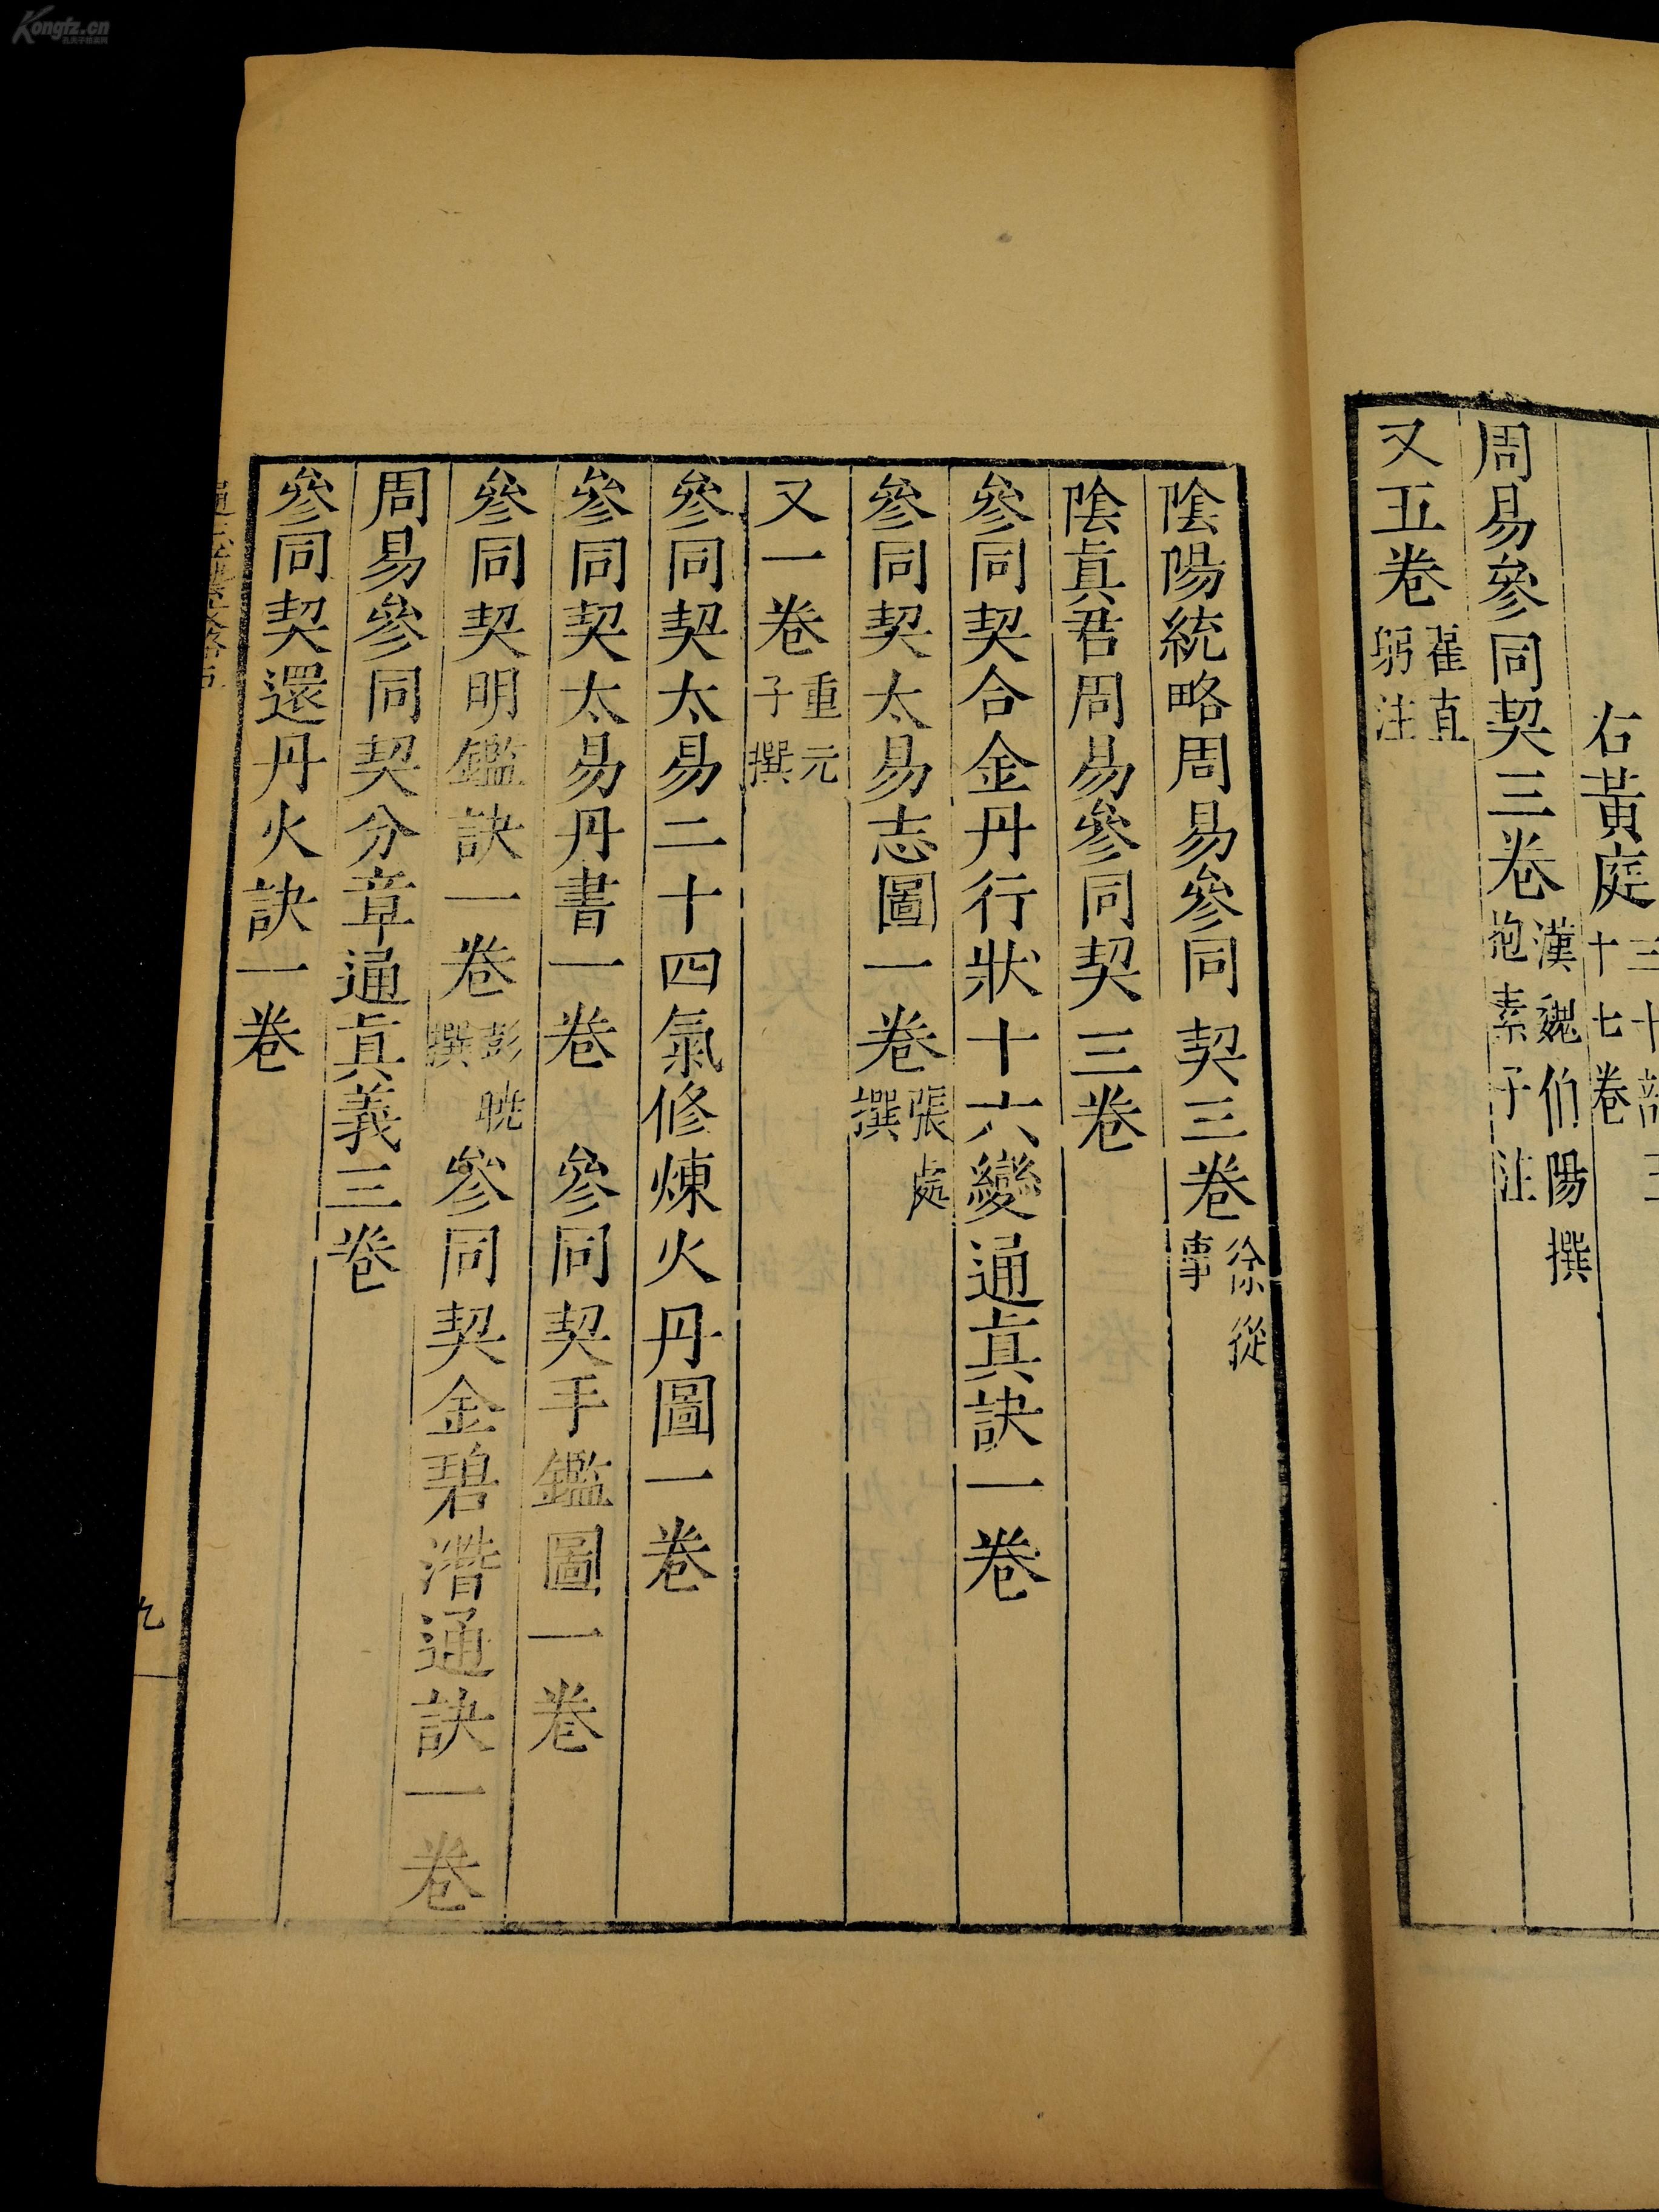 右黃庭三十部三十七卷
周易參同契三卷漢魏伯陽撰抱素子注
又五卷翟直躬注
陰陽統略周易參同契三卷徐從事
陰眞君周易參同契三卷
參同契合金丹行狀十六變通眞訣一卷
參同契太易志圖一卷張處撰
又一卷重元子撰
參同契太易二十四氣修煉火丹圖一卷
參同契太易丹書一卷　參同契手鑑圖一卷
參同契明鑑訣一卷彭曉撰　參同契金碧潛通訣一卷
周易參同契分章通眞義三卷
參同契還丹火訣一卷
九
Kongfz.cn
孔夫子旧书网